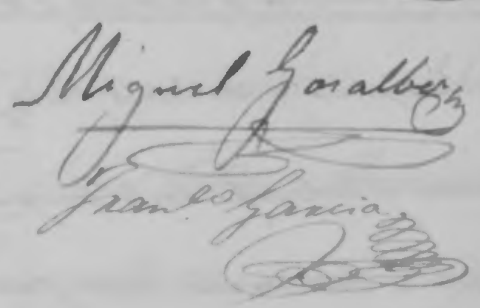 Miguel Gosalbez
Fran.co Garcia